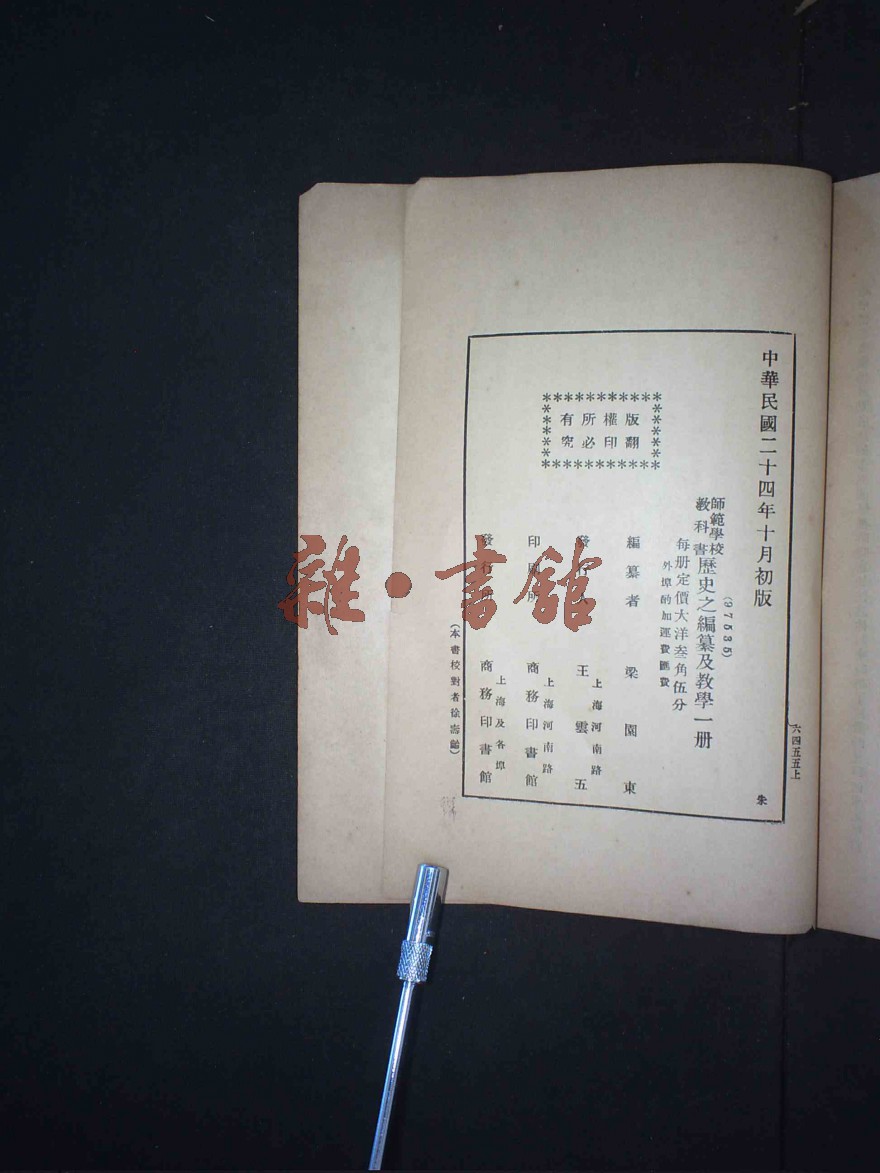 中華民國二十四年十月初版
(97535)
師範學校
教科書
歷史之編纂及教學一册
每册定價大洋叁角伍分
外埠酌加運費匯費
版權所有
翻印必究
編纂者 梁園東
發行人 王雲五
上海河南路
印刷所 商務印書館
上海河南路
發行所 商務印書館
上海及各埠
(本書校對者徐壽齡)
六四五五上
朱
雜·書館